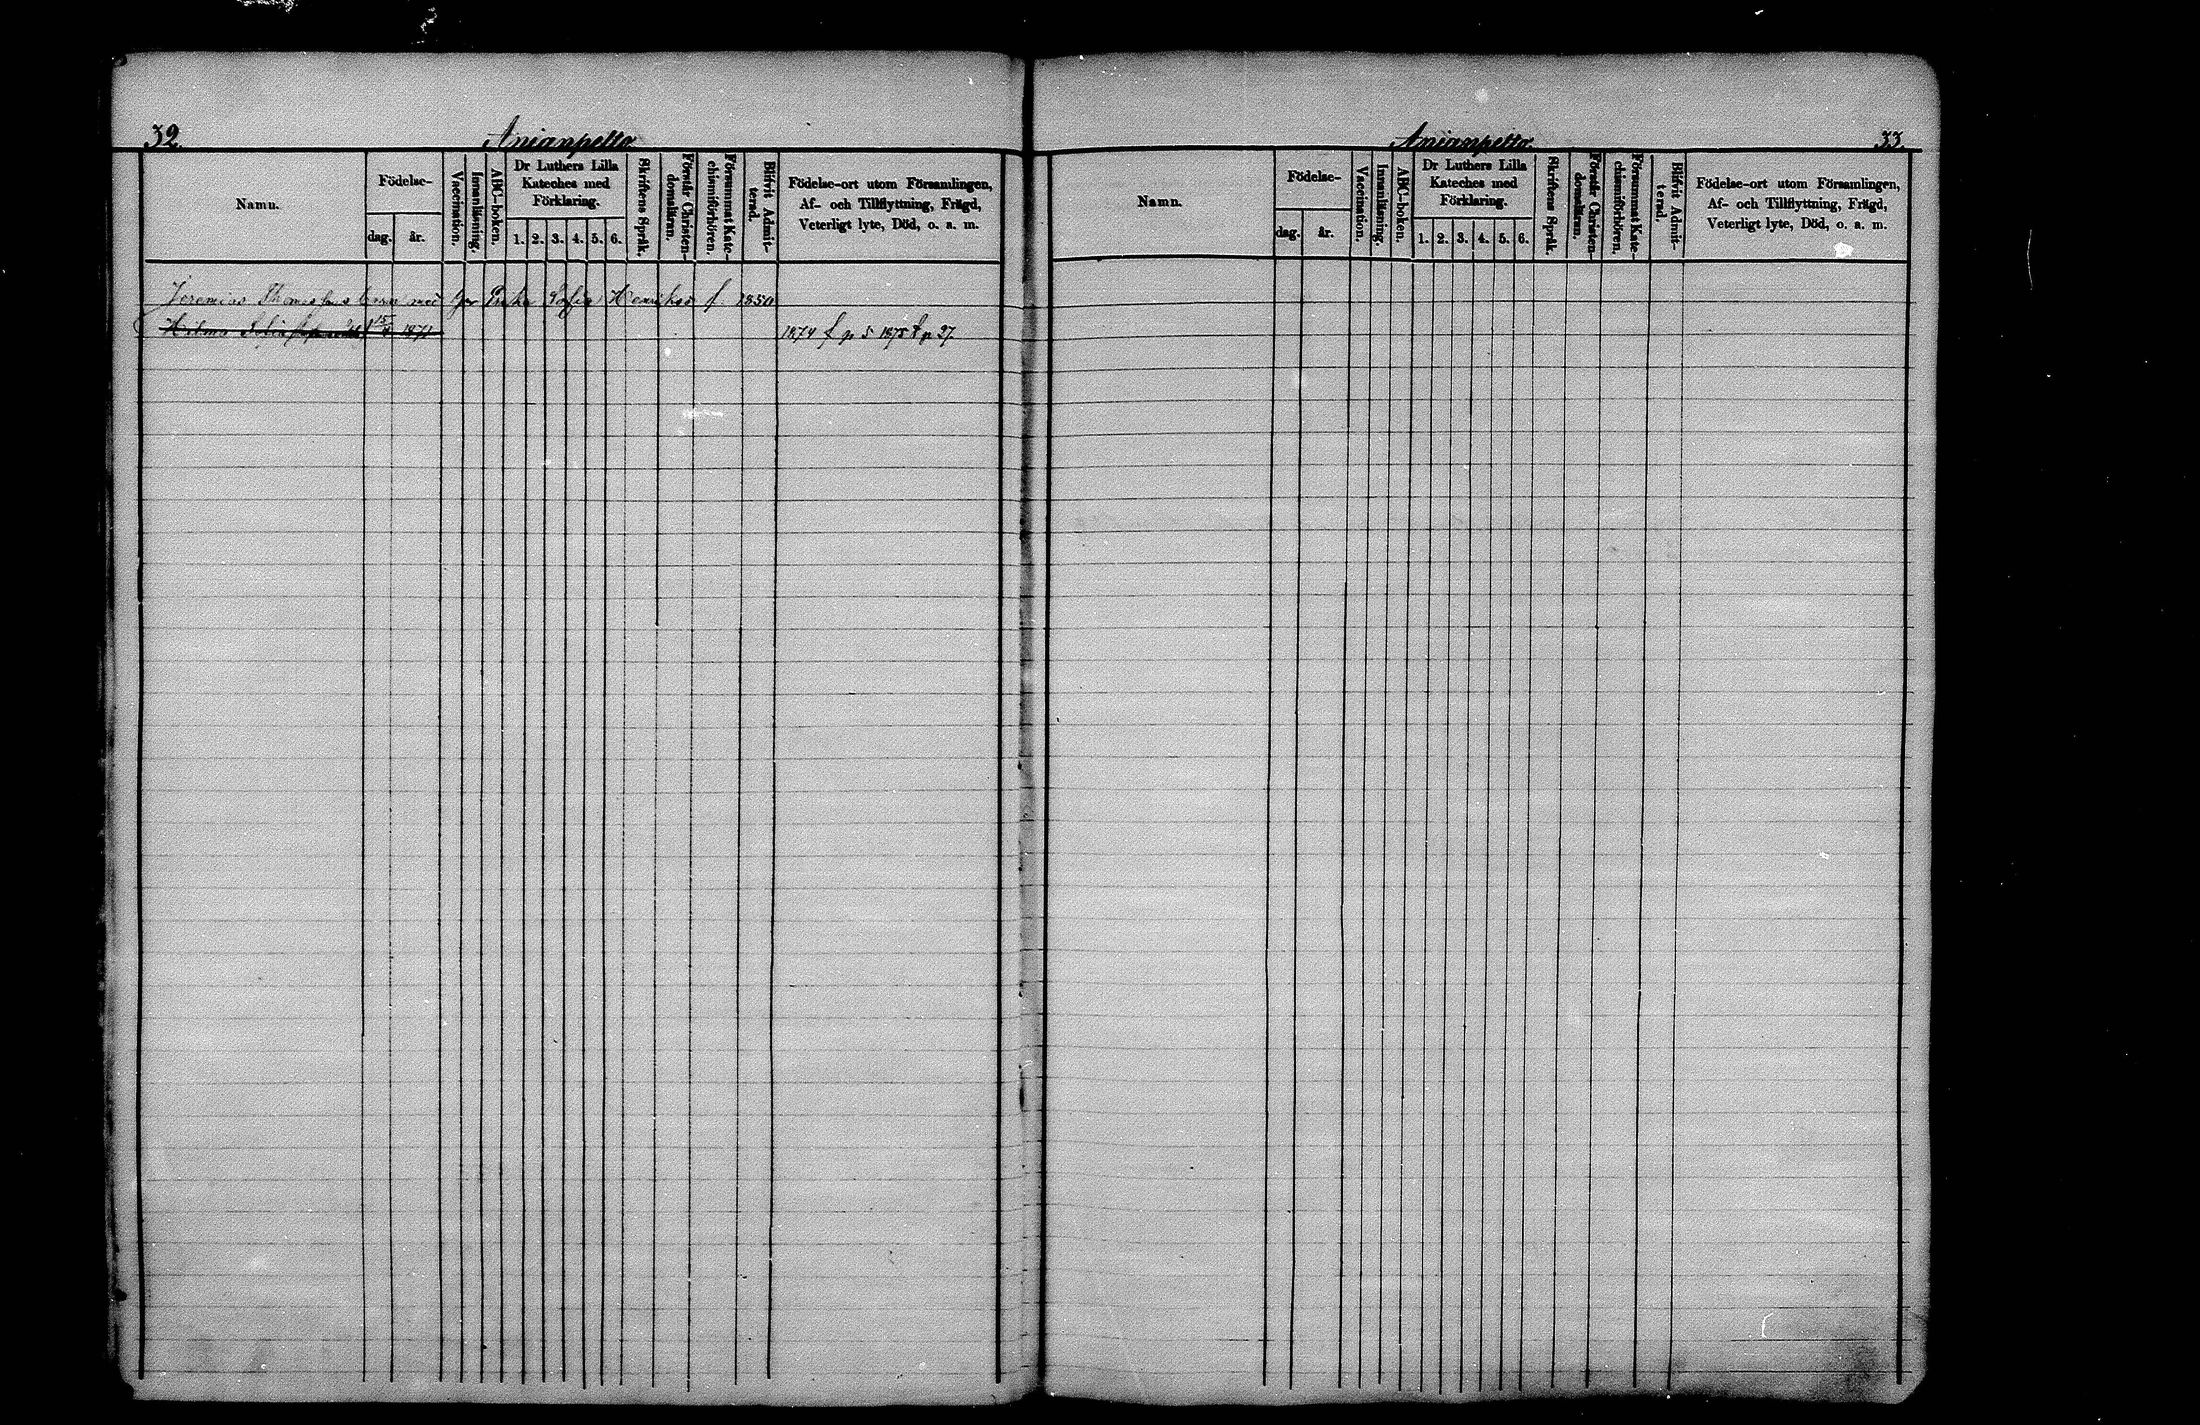 32.
Anianpelto
Namn.
Födelse-
dag.
år.
Vaccination.
Innanläsning.
ABC-boken.
Dr Luthers Lilla
Kateches med
Förklaring.
1. 2. 3. 4. 5. 6.
Skriftens Språk.
Förstår Christen-
domsläran.
Försummat Kate-
chismiförhören.
Blifvit Admit-
terad.
Födelse-ort utom Församlingen,
Af- och Tillflyttning, Frägd,
Veterligt lyte, Död, o. a. m.
Jeremias Thomasson med Sofia f. 1850
Hilma Sofia 15 1871 1874 f p 5 1875 f p 27.
Anianpelto
33.
Namn.
Födelse-
dag.
år.
Vaccination.
Innanläsning.
ABC-boken.
Dr Luthers Lilla
Kateches med
Förklaring.
1. 2. 3. 4. 5. 6.
Skriftens Språk.
Förstår Christen-
domsläran.
Försummat Kate-
chismiförhören.
Blifvit Admit-
terad.
Födelse-ort utom Församlingen,
Af- och Tillflyttning, Frägd,
Veterligt lyte, Död, o. a. m.